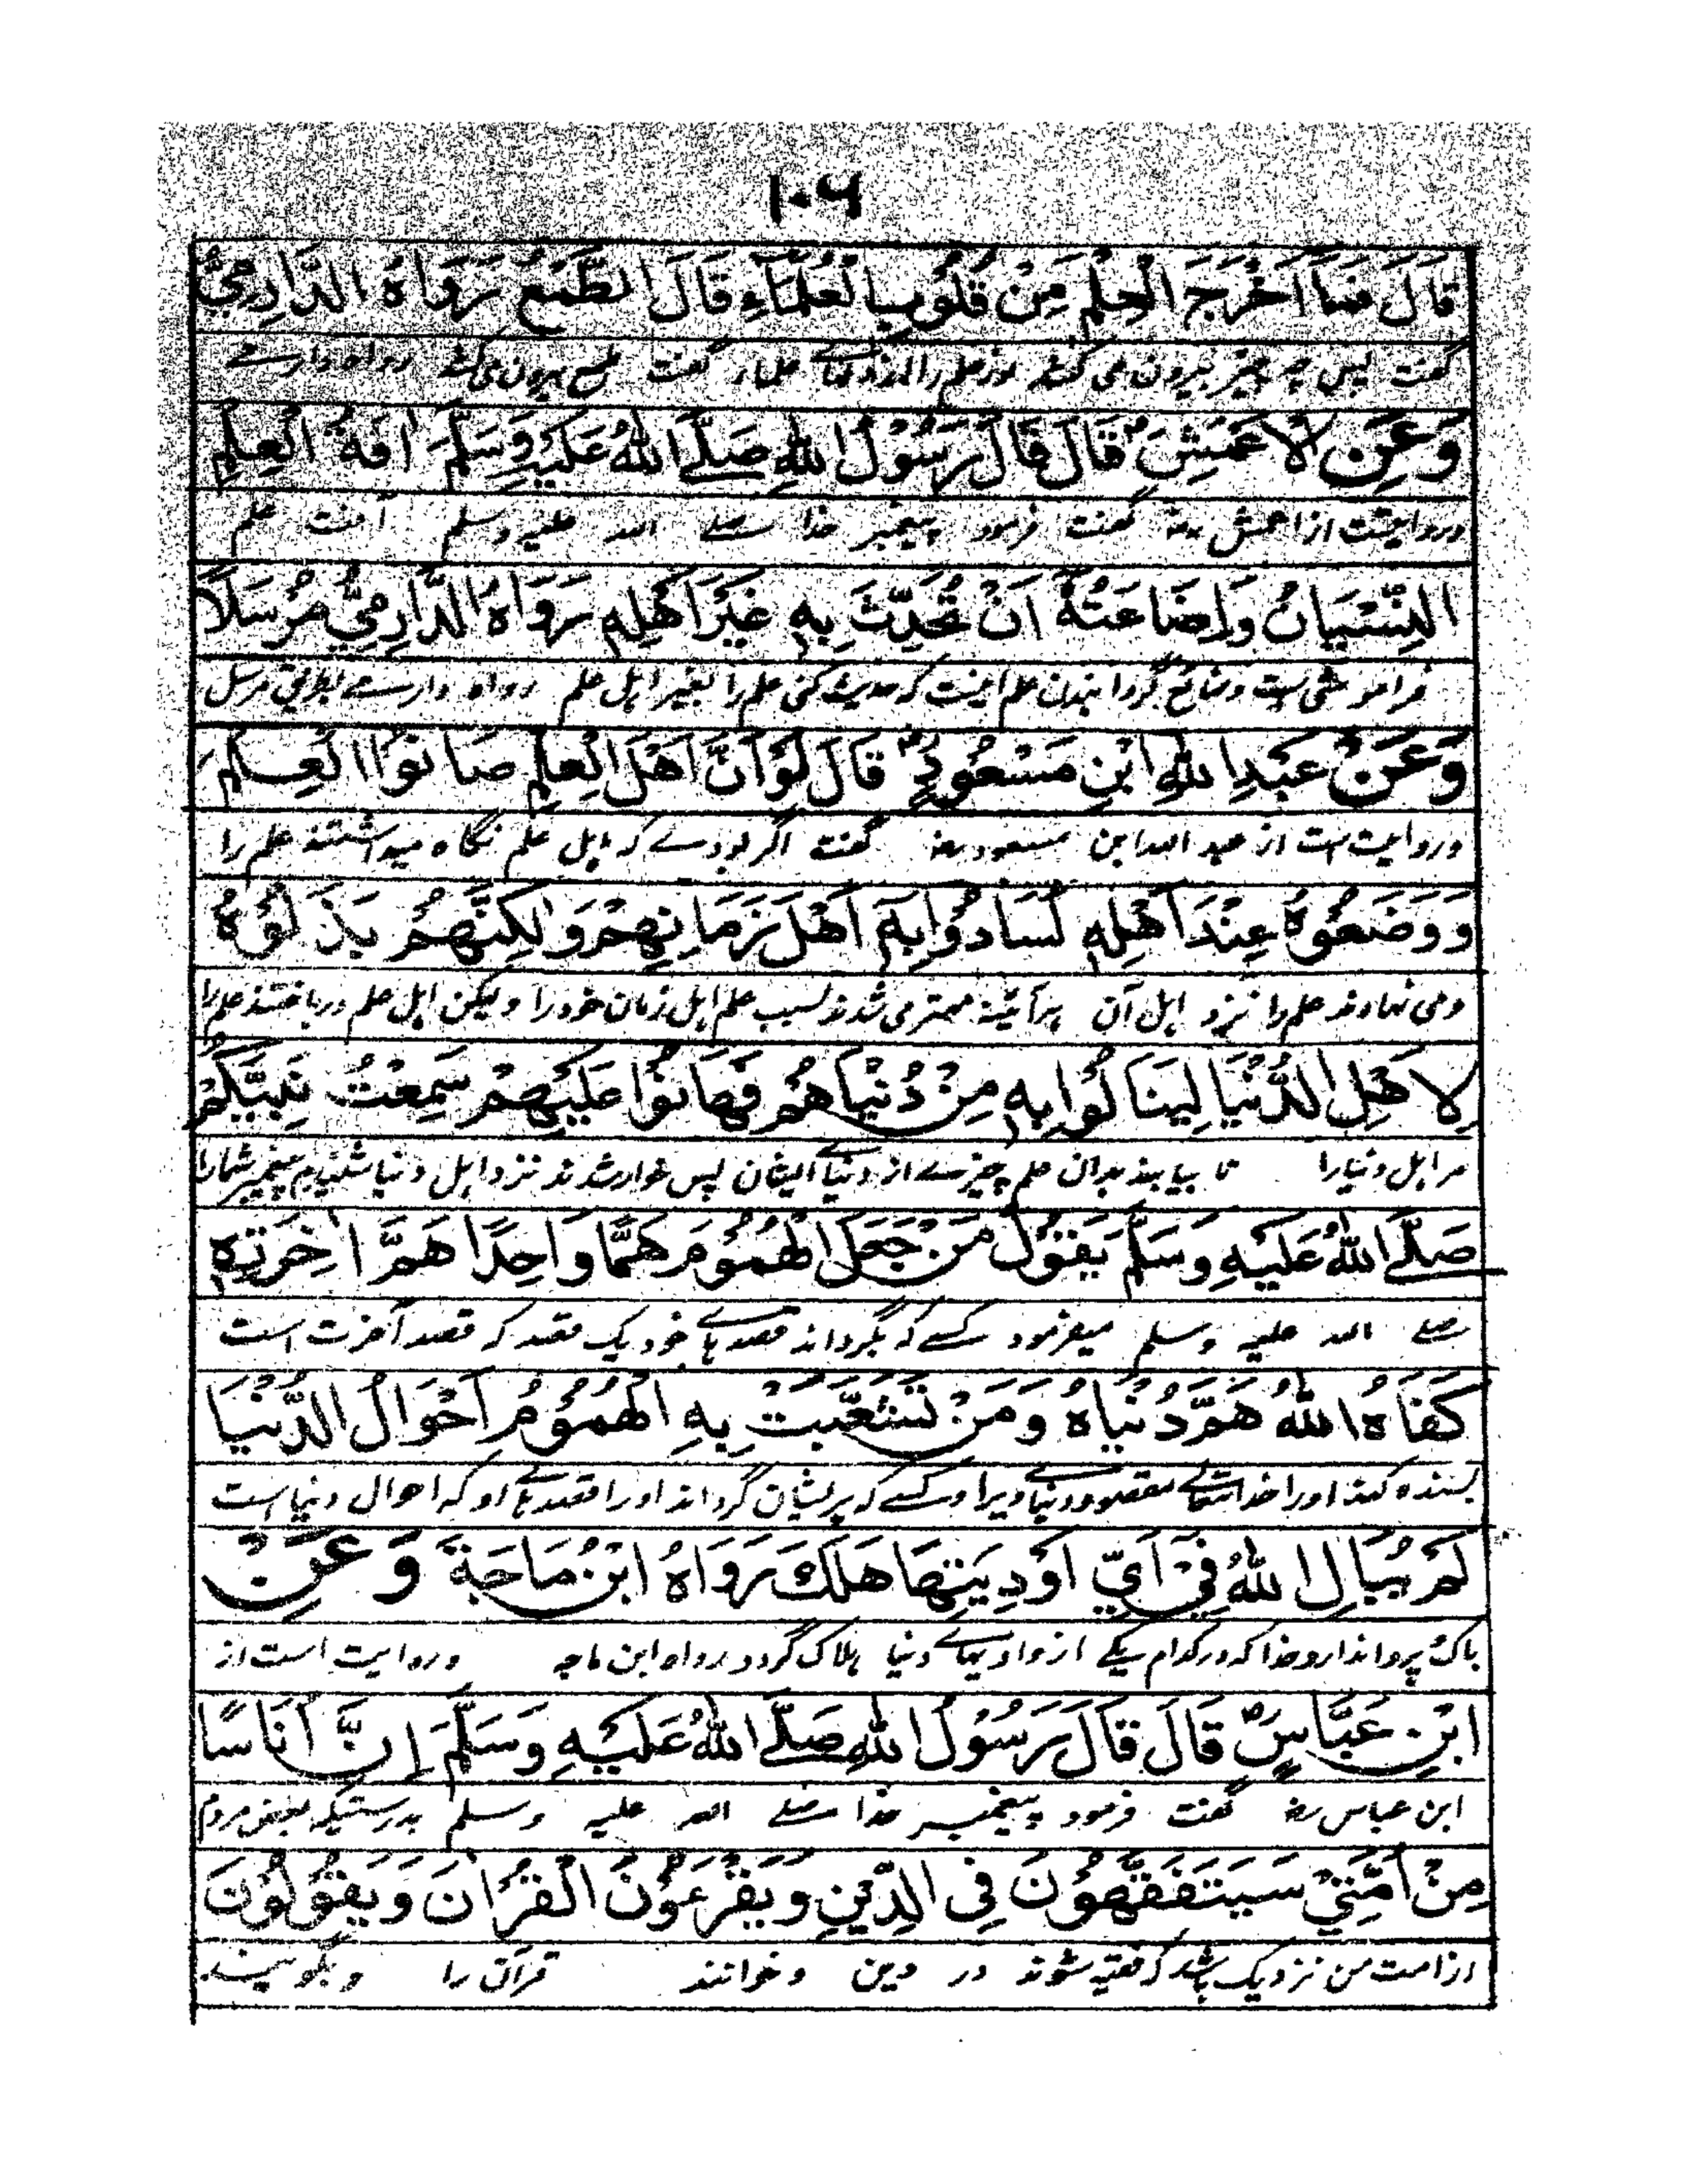 ۱۰۶
قَالَ فَمَا اَخْرَجَ الْعِلْمَ مِنْ قُلُوْبِ الْعُلَمَآءِ قَالَ الطَّمَعُ رَوَاهُ الدَّارِمِيُّ
گفت پس چه چیز بیرون می کند نور علم را از دلهاے علمار گفت طمع بیرون می کند رواه دارمے
وَعَنِ الْاَعْمَشِ رض قَالَ قَالَ رَسُوْلُ اللّٰهِ صَلَّے اللّٰهُ عَلَيْهِ وَسَلَّمَ اٰفَةُ الْعِلْمِ
وروایتست از اعمش رضه گفت فرمود پیغمبر خدا صلے الله علیه وسلم آفت علم
النِّسْيَانُ وَاِضَاعَتُهٗ اَنْ تُحَدِّثَ بِهٖ غَيْرَ اَهْلِهٖ رَوَاهُ الدَّارِمِيُّ مُرْسَلًا
فراموشی ست وضائع گردانیدن علم اینست که حدیث کنی علم را بغیر اہل علم رواه دارمے بطریق مرسل
وَعَنْ عَبْدِ اللّٰهِ ابْنِ مَسْعُوْدٍ رض قَالَ لَوْ اَنَّ اَهْلَ الْعِلْمِ صَانُوا الْعِلْمَ
وروایت ست از عبد الله ابن مسعود رضه گفت اگر بودے که اہل علم نگاه میداشتند علم را
وَوَضَعُوْهُ عِنْدَ اَهْلِهٖ لَسَادُوْا بِهٖ اَهْلَ زَمَانِهِمْ وَلٰكِنَّهُمْ بَذَلُوْهُ
ومی نهادند علم را نزد اہل آن ہرآئینه مهتر می شدند بسبب علم اہل زمان خود را ولیکن اہل علم درباختند علم را
لِاَهْلِ الدُّنْيَا لِيَنَالُوْا بِهٖ مِنْ دُنْيَاهُمْ فَهَانُوْا عَلَيْهِمْ سَمِعْتُ نَبِيَّكُمْ
مر اہل دنیا را تا بیابند بدان علم چیزے از دنیاے ایشان پس خوار شدند نزد اہل دنیا شنیدم پیغمبر شمارا
صَلَّے اللّٰهُ عَلَيْهِ وَسَلَّمَ يَقُوْلُ مَنْ جَعَلَ الْهُمُوْمَ هَمًّا وَاحِدًا هَمَّ اٰخِرَتِهٖ
صلے الله علیه وسلم میفرمود کسے که بگرداند قصدہاے خود یک قصد که قصد آخرت است
كَفَاهُ اللّٰهُ هَمَّ دُنْيَاهُ وَمَنْ تَشَعَّبَتْ بِهِ الْهُمُوْمُ اَحْوَالُ الدُّنْيَا
بسنده کند اورا خدا تعالے مقصود دنیاے ویرا وکسے که پریشان گرداند اورا قصدہاے او که احوال دنیا است
لَمْ يُبَالِ اللّٰهُ فِيْ اَيِّ اَوْدِيَتِهَا هَلَكَ رَوَاهُ ابْنُ مَاجَةَ وَعَنِ
باک پروا ندارد خدا که در کدام یکے از وادیهاے دنیا ہلاک گردد رواه ابن ماجه وروایت است از
ابْنِ عَبَّاسٍ رض قَالَ قَالَ رَسُوْلُ اللّٰهِ صَلَّے اللّٰهُ عَلَيْهِ وَسَلَّمَ اِنَّ اُنَاسًا
ابن عباس رضه گفت فرمود پیغمبر خدا صلے الله علیه وسلم بدرستیکه بعض مردم
مِنْ اُمَّتِيْ سَيَتَفَقَّهُوْنَ فِى الدِّيْنِ وَيَقْرَءُوْنَ الْقُرْاٰنَ وَيَقُوْلُوْنَ
از امت من نزدیک باشد که فقیه شوند در دین وخوانند قرآن را وبگویند